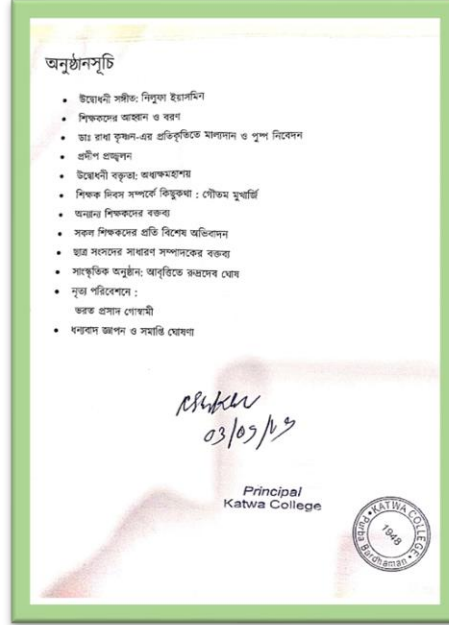 অনুষ্ঠানসূচি
• উদ্বোধনী সঙ্গীত: নিলুফা ইয়াসমিন
• শিক্ষকদের আহ্বান ও বরণ
• ডাঃ রাধা কৃষ্ণন-এর প্রতিকৃতিতে মাল্যদান ও পুষ্প নিবেদন
• প্রদীপ প্রজ্জ্বলন
• উদ্বোধনী বক্তৃতা: অধ্যক্ষমহাশয়
• শিক্ষক দিবস সম্পর্কে কিছুকথা : গৌতম মুখার্জি
• অন্যান্য শিক্ষকদের বক্তব্য
• সকল শিক্ষকদের প্রতি বিশেষ অভিবাদন
• ছাত্র সংসদের সাধারণ সম্পাদকের বক্তব্য
• সাংস্কৃতিক অনুষ্ঠান: আবৃত্তিতে রুদ্রদেব ঘোষ
• নৃত্য পরিবেশনে :
ভরত প্রসাদ গোস্বামী
• ধন্যবাদ জ্ঞাপন ও সমাপ্তি ঘোষণা
03/09/19
Principal
Katwa College
KATWA COLLEGE
1948
Purba Bardhaman